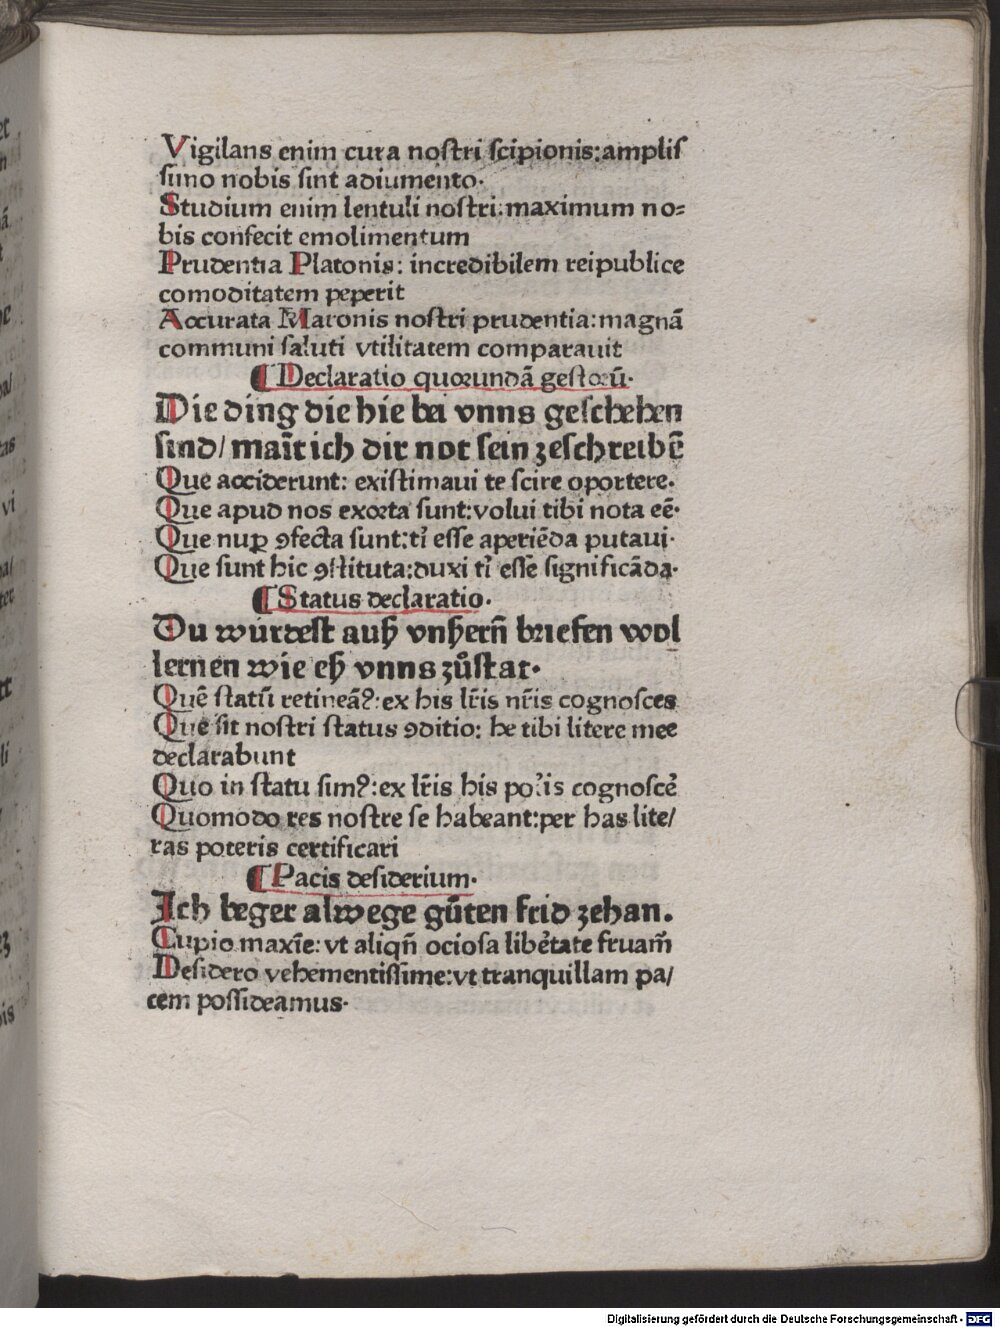 Vigilans enim cura nostri scipionis:amplis
simo nobis sint adiumento·
Studium enim lentuli nostri:maximum no=
bis confecit emolimentum
Prudentia Platonis: incredibilem reipublice
comoditatem peperit
Accurata Maronis nostri prudentia:magnā
communi saluti vtilitatem comparauit
¶ Declaratio quorundā gestorū·
Die ding die hie bei vnns geschehen
sind/ maīt ich dir not sein zeschreibē
Que acciderunt: existimaui te scire oportere·
Que apud nos exorta sunt:volui tibi nota eē·
Que nuꝑ ꝯfecta sunt:tī esse aperiēda putaui·
Que sunt hic ꝯstituta:duxi tī esse significāda·
¶ Status declaratio·
Du wurdest auß vnßern̄ briefen wol
lernen wie eß vnns zůstat·
Quē statū retineā?:ex his lr̄is nr̄is cognosces
Que sit nostri status ꝯditio: he tibi litere mee
declarabunt
Quo in statu sim?:ex lr̄is his cognoscē
Quomodo res nostre se habeant:per has lite/
ras poteris certificari
¶ Pacis desiderium·
Ich beger alwege gůten frid zehan.
Cupio maxīe: vt aliqn̄ ociosa libētate fruam̄
Desidero vehementissime:vt tranquillam pa/
cem possideamus·
is
Digitalisierung gefördert durch die Deutsche Forschungsgemeinschaft - DFG